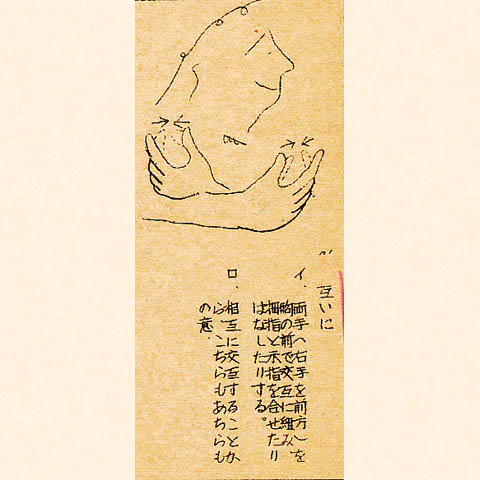 互いに
イ、両手(右手を前方)を
胸の前で交互に組み
拇指と示指を合せたり
はなしたりする。
ロ、相互に交互することか
ら、こちらもあちらも
の意．